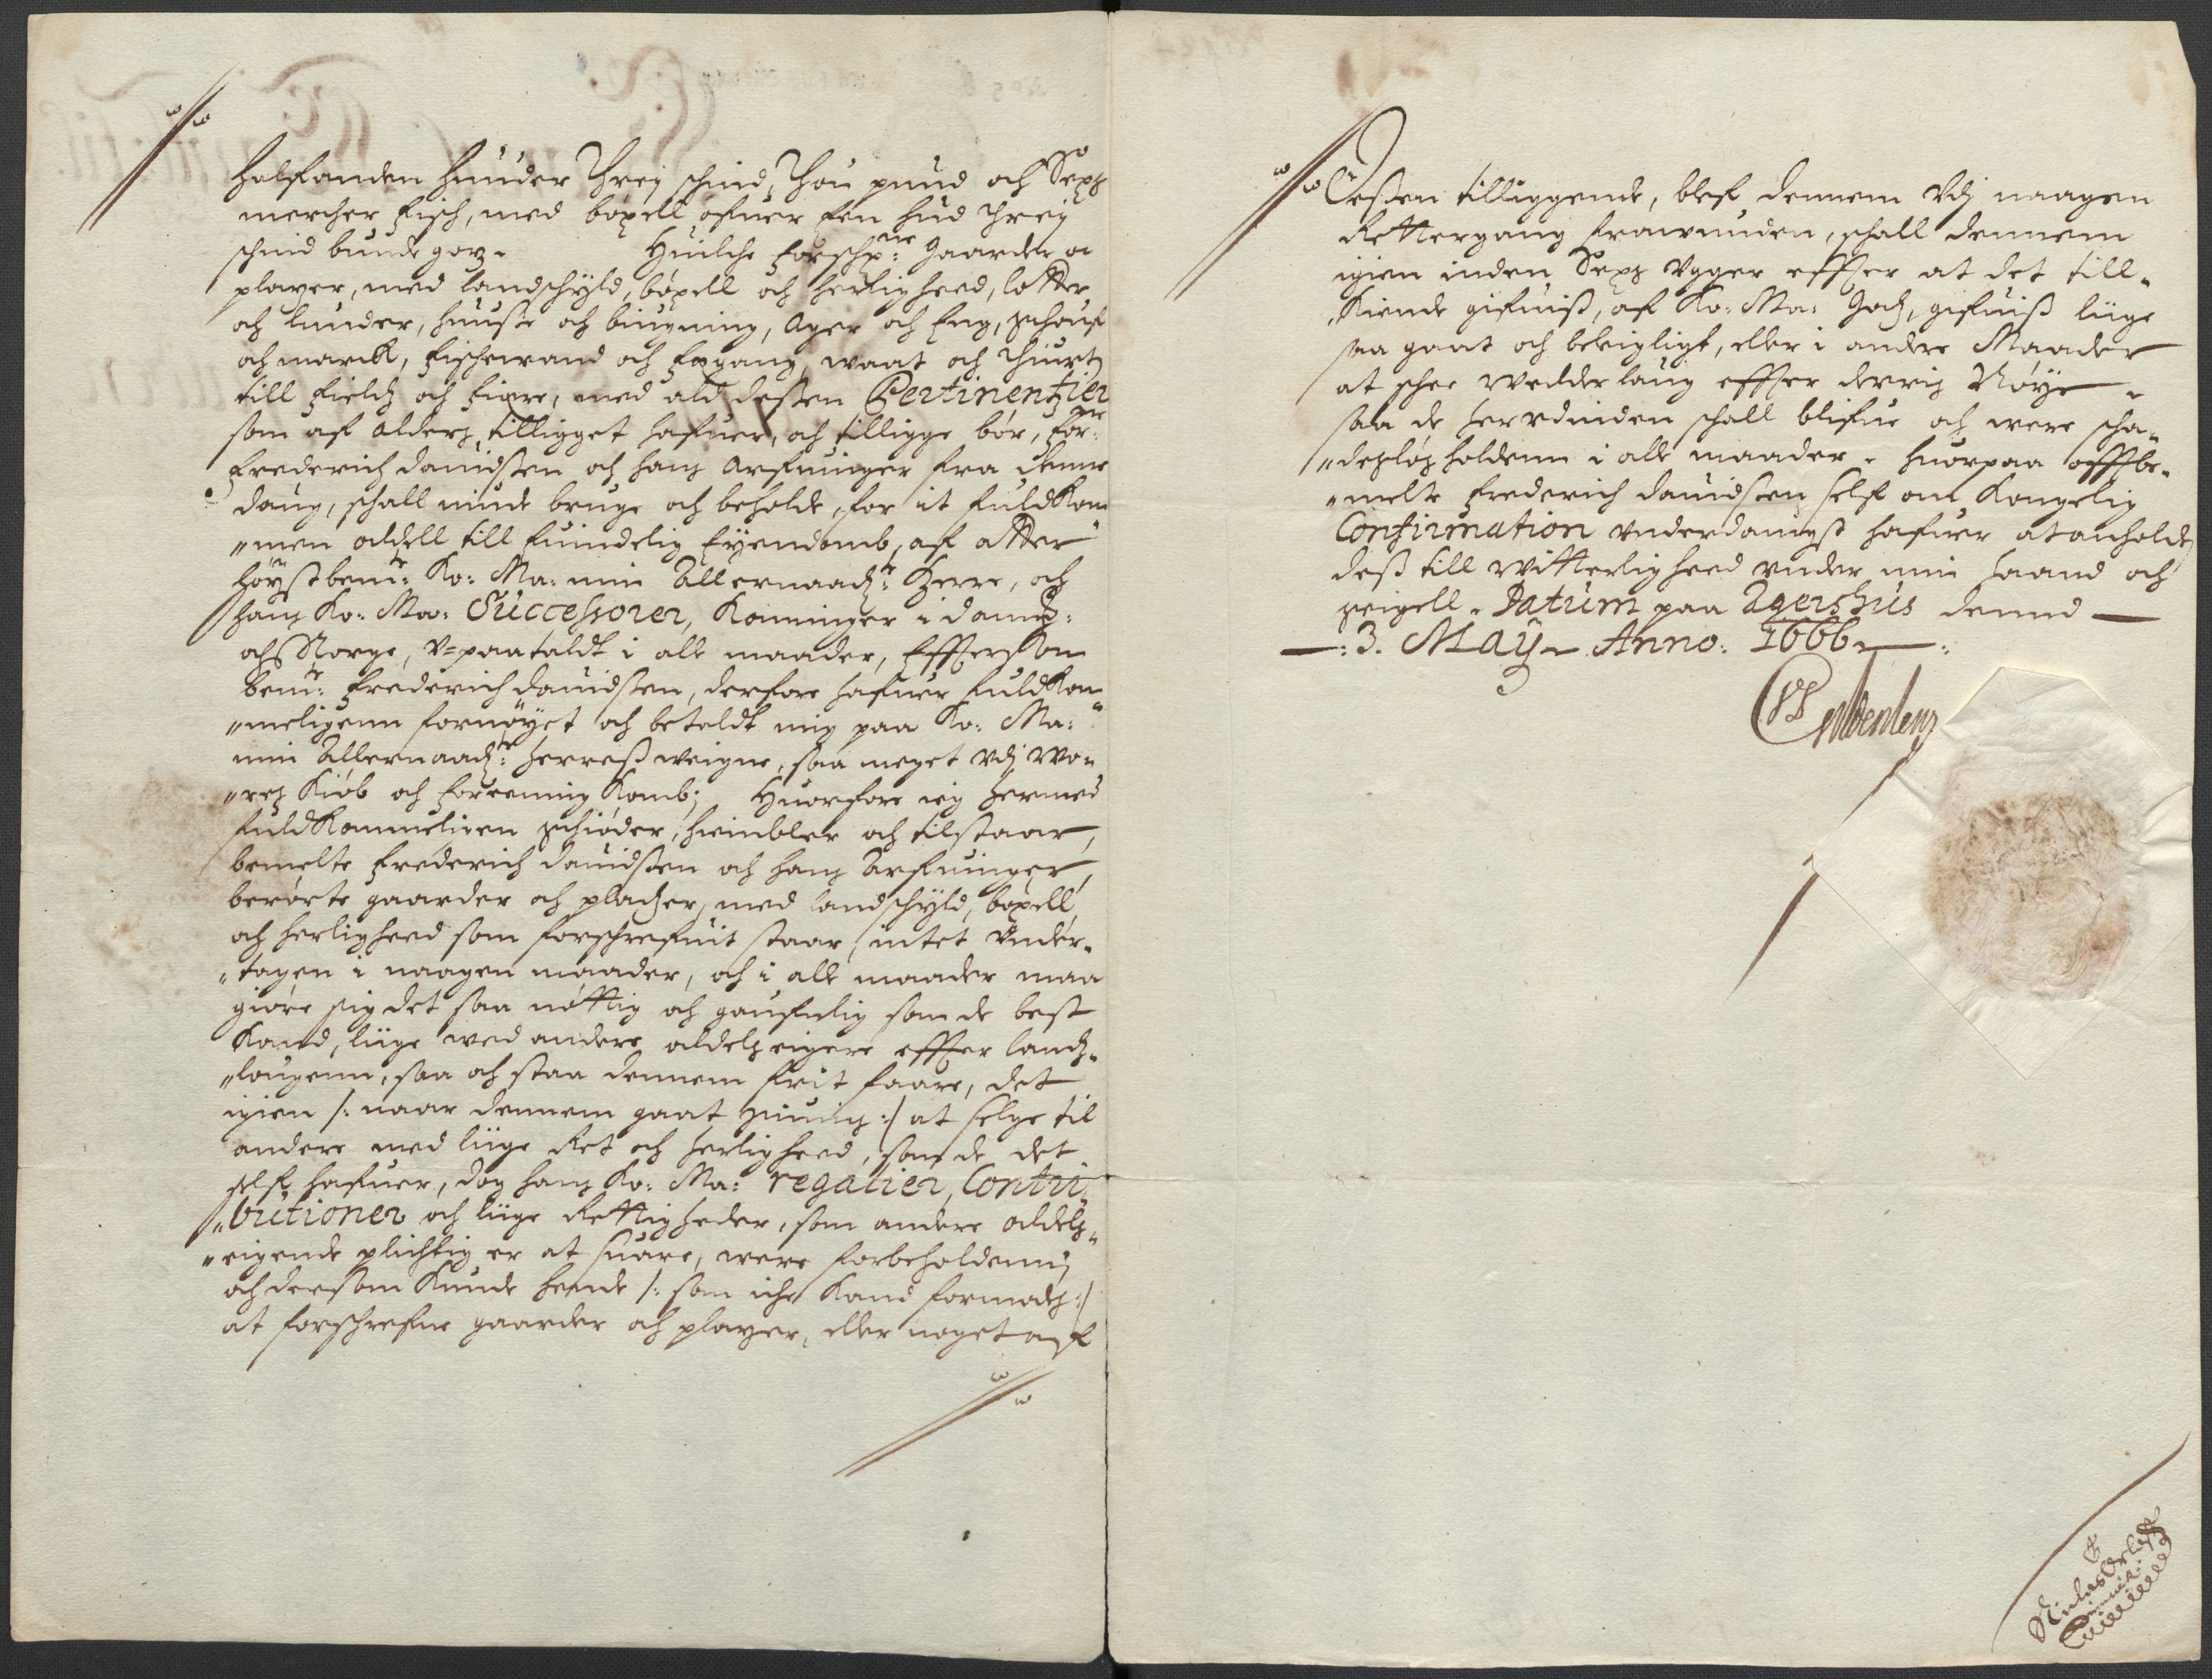 halfanden hunder Threj schind, Thou pund och Sexz
mercher fisch, med böxell ofuer een hud threj
schind bunde gotz. Huilche forschr:ne Gaarder oc
platzer, med landschyld, böxell och herligheed, lotter
och lunder, huusse och biugning, Ager och Eng, schouf
och march, fischewand och fægang, waat och thiurt
till field och fiære, med ald dessen Pertinentzier
som af Alderz tilligget hafuer, och tilligge bør, for:ne
Frederich Dauidssen och hanz Arfuinger fra denne
daug, schall niude bruge och beholde, for it fuldkom
"men oddell till Euindelig Eyendomb, af atter
Höystbem:te Ko: Ma: min Allernaadz:te Herre, och
hanz Ko: Ma: Successorer, Konninger i Danm:
och Norge, V=paataldt i alle maader, Effterssom
bem:te Frederich Dauidssen, derfore hafuer fuldkom
"meligenn fornøyet och betaldt mig paa Ko: Ma:
min Allernaadz:te Herress weigne, saa meget Vdj wo-
"rez Kiöb och foreening Komb; Huorfore ieg hermed
fuldkommeligen schiøder, hiembler och tilstaar,
bemelte Frederich Dauidssen och hanz Arfuinger,
berørte gaarder och pladzer, med landschyld, böxell,
och herligheed som forschrefuit staar, intet Vnder-
"tagen i naagen maader, och i alle maader maa
giøre sig det saa nøttig och gaufnlig som de best
Kand, liige wed andere oddelz eigere effter landz-
"lougenn, saa och staa dennem frit faare, det
igien /: naar dennem gaat siuniz :/ at selge til
andere med liige Ret och herligheed, som de det
self hafuer, dog hanz Ko: Ma: regalier, Contri-
"butioner och liige Rettigheder, som andere oddelz-
"eigende plichtig er at suare, were forbeholdenn;
och dersom Kunde hende /: som iche Kand formodz :/
at forschrefne gaarder och platzer, eller noget af
Dessen tilliggende, blef dennem Vdj naagen
Rettergang frawunden, schall dennem
igien inden Sexz Vgger effter at det till-
"Kiende gifuiss, af Ko: Ma: Godz, gifuiss liige
saa gaat och beleigligt, eller i andere Maader
at schee wedderlaug effter deriz Nøye-
saa de herudinden schall blifue och were scha-
"dessløss holdenn i alle maader. Huorpaa offtbe-
"melte Frederich Dauidssen self om Kongelig
Confirmation Vnderdanigst hafuer at anholde,
dess till witterligheed under min haand och
zeigell. Datum paa Agershus dennd —
—: 3. Maÿ Anno: 1666 —:

Niclas